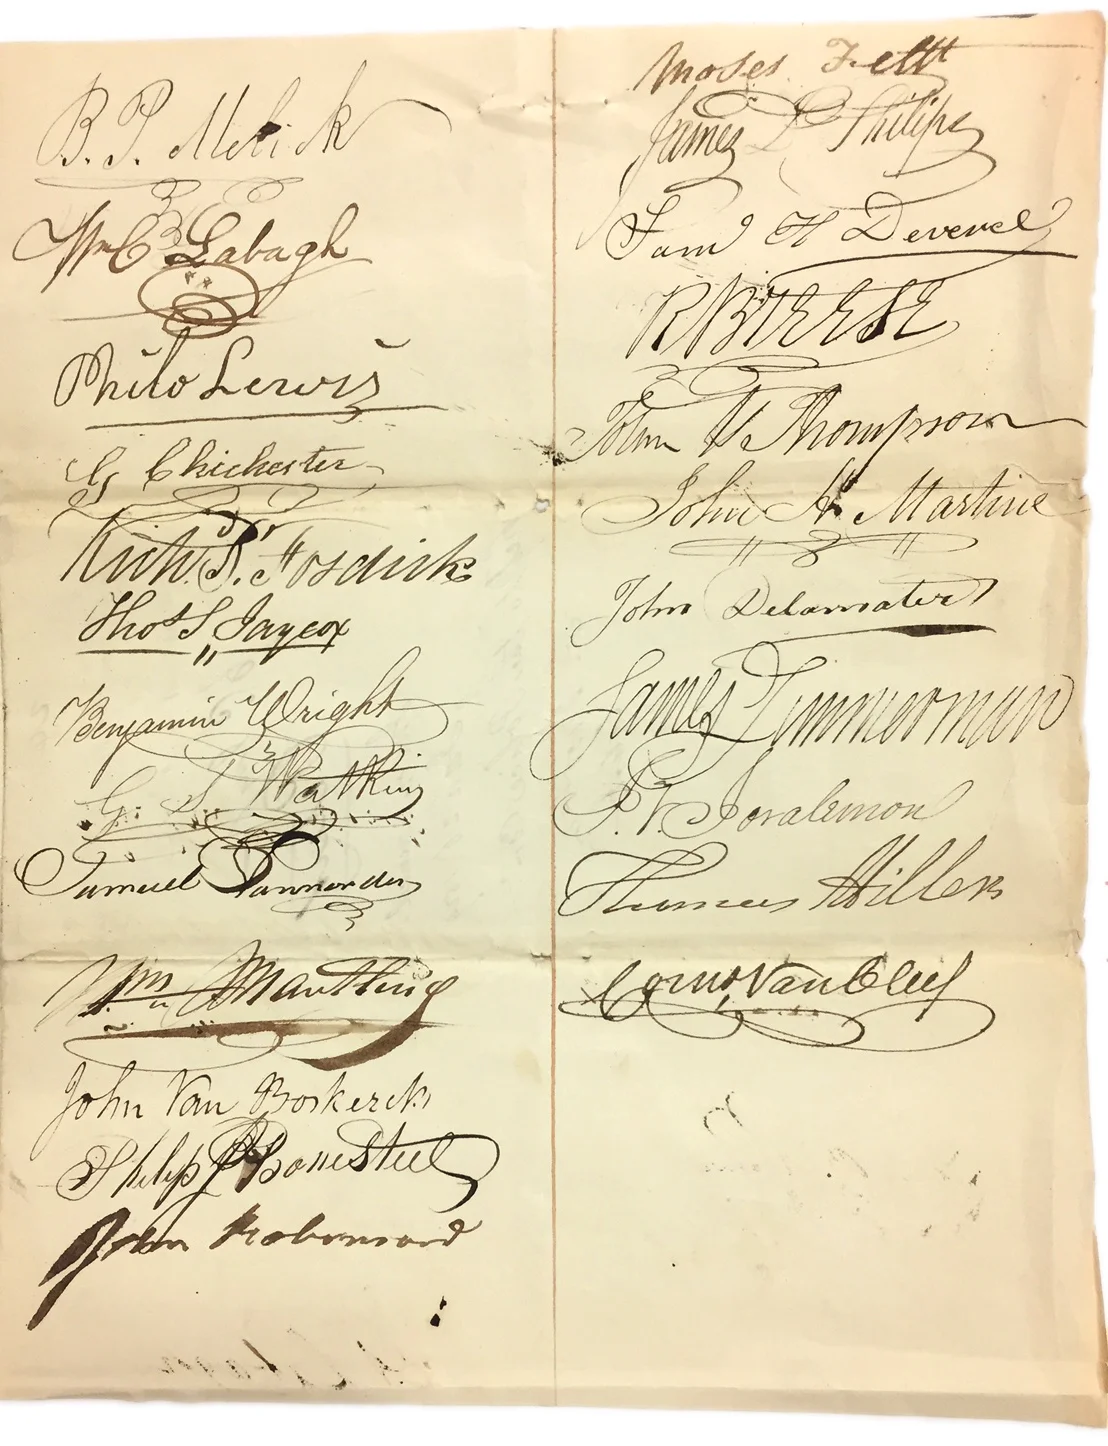 B. P. Melick
Wm C Labagh
Philo Lewis
G Chichester
Rich. R. Fosdick
Thos S Jaycox
Benjamin Wright
G. S. Watkins
Samuel Vannorden
Wm Mantling
John Van Boskerck
Philip J Bonesteel
John
Moses Feltt
James D Philips
Sam H Deverel
R BREESE
John V Thompson
John H Martine
John Delamater
James Zimmerman
P. V. Joralemon
Thomas Hillers
Corns Van Cleef